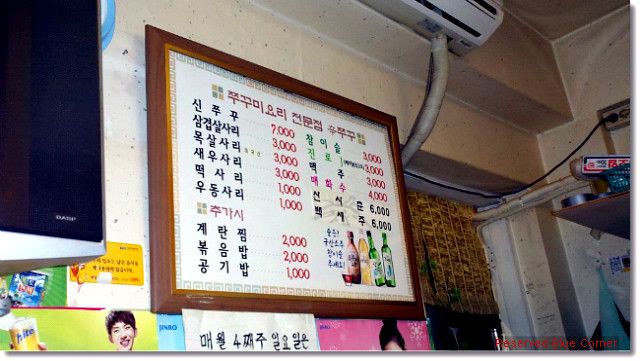 쭈꾸미요리 전문점 유쭈꾸
신 쭈 꾸 7,000
삼겹살사리 3,000
목살사리 3,000
새우사리 3,000
떡 사 리 1,000
우동사리 1,000
추가시
계 란 찜 2,000
볶 음 밥 2,000
공 기 밥 1,000
참 이 슬 3,000
진 로 3,000
맥 주 3,000
매 화 수 4,000
산 사 춘 6,000
백 세 주 6,000
매월 4째주 일요일은
JINRO
hite
Reserved Blue Corner